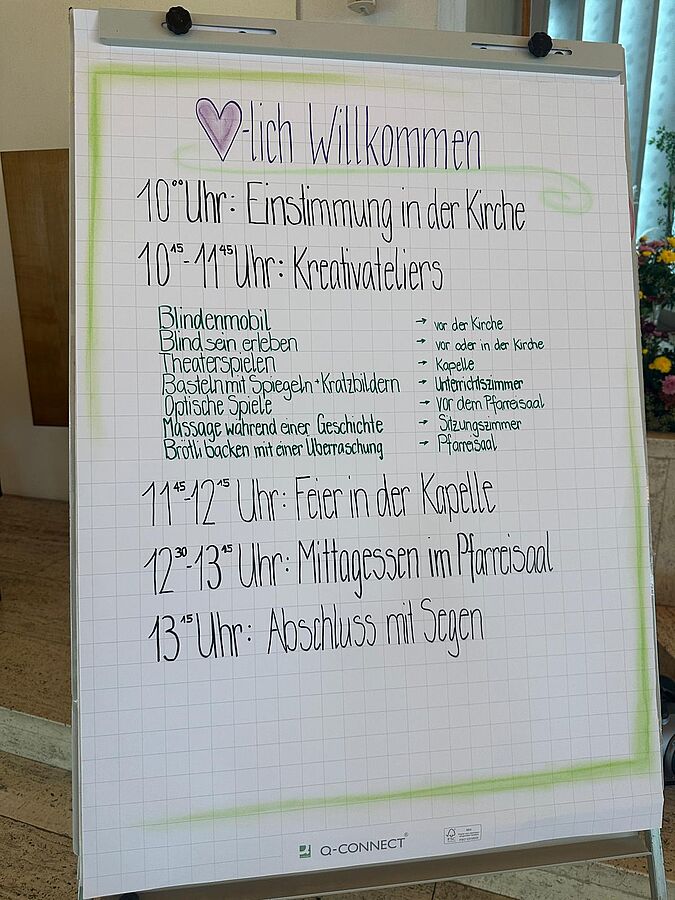 ♥-lich Willkommen
10°° Uhr: Einstimmung in der Kirche
10¹⁵-11⁴⁵ Uhr: Kreativateliers
Blindenmobil → vor der Kirche
Blind sein erleben → vor oder in der Kirche
Theaterspielen → Kapelle
Basteln mit Spiegeln + Kratzbildern → Unterrichtszimmer
Optische Spiele → vor dem Pfarreisaal
Massage während einer Geschichte → Sitzungszimmer
Brötli backen mit einer Überraschung → Pfarreisaal
11⁴⁵-12¹⁵ Uhr: Feier in der Kapelle
12³⁰-13¹⁵ Uhr: Mittagessen im Pfarreisaal
13¹⁵ Uhr: Abschluss mit Segen
Q-CONNECT®
FSC